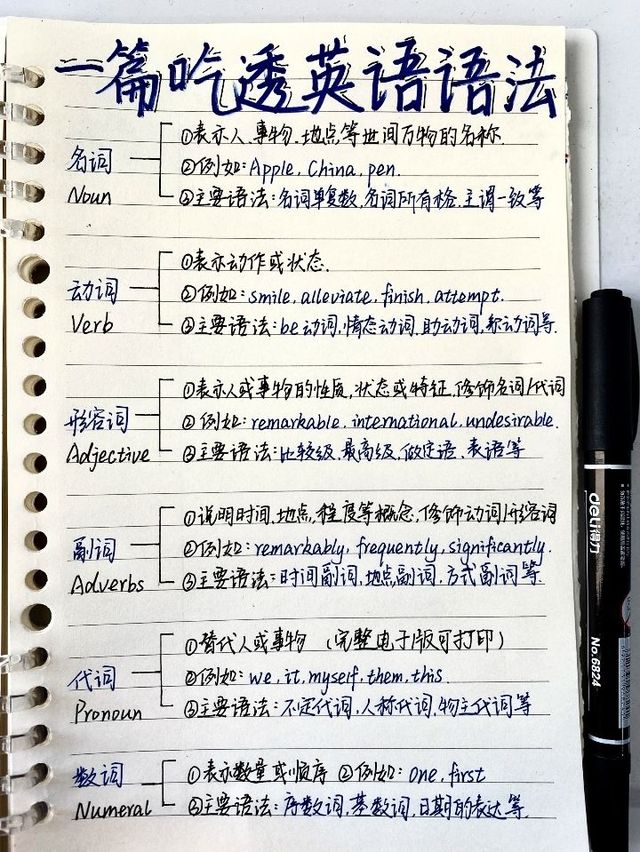 一篇吃透英语语法
①表示人、事物、地点等世间万物的名称
名词
②例如: Apple, China, pen.
Noun
③主要语法: 名词单复数, 名词所有格, 主谓一致等
①表示动作或状态.
动词
②例如: smile, alleviate, finish, attempt.
Verb
③主要语法: be动词, 情态动词, 助动词, 系动词等.
①表示人或事物的性质, 状态或特征, 修饰名词/代词
形容词
②例如: remarkable, international, undesirable.
Adjective
③主要语法: 比较级、最高级, 做定语、表语等
①说明时间, 地点, 程度等概念, 修饰动词/形容词
副词
②例如: remarkably, frequently, significantly.
Adverbs
③主要语法: 时间副词, 地点副词, 方式副词等
①替代人或事物 (完整电子版可打印)
代词
②例如: we, it, myself, them, this.
Pronoun
③主要语法: 不定代词, 人称代词, 物主代词等
数词
①表示数量或顺序 ②例如: one, first
Numeral
③主要语法: 序数词, 基数词, 日期的表达等
deli得力
No.6824